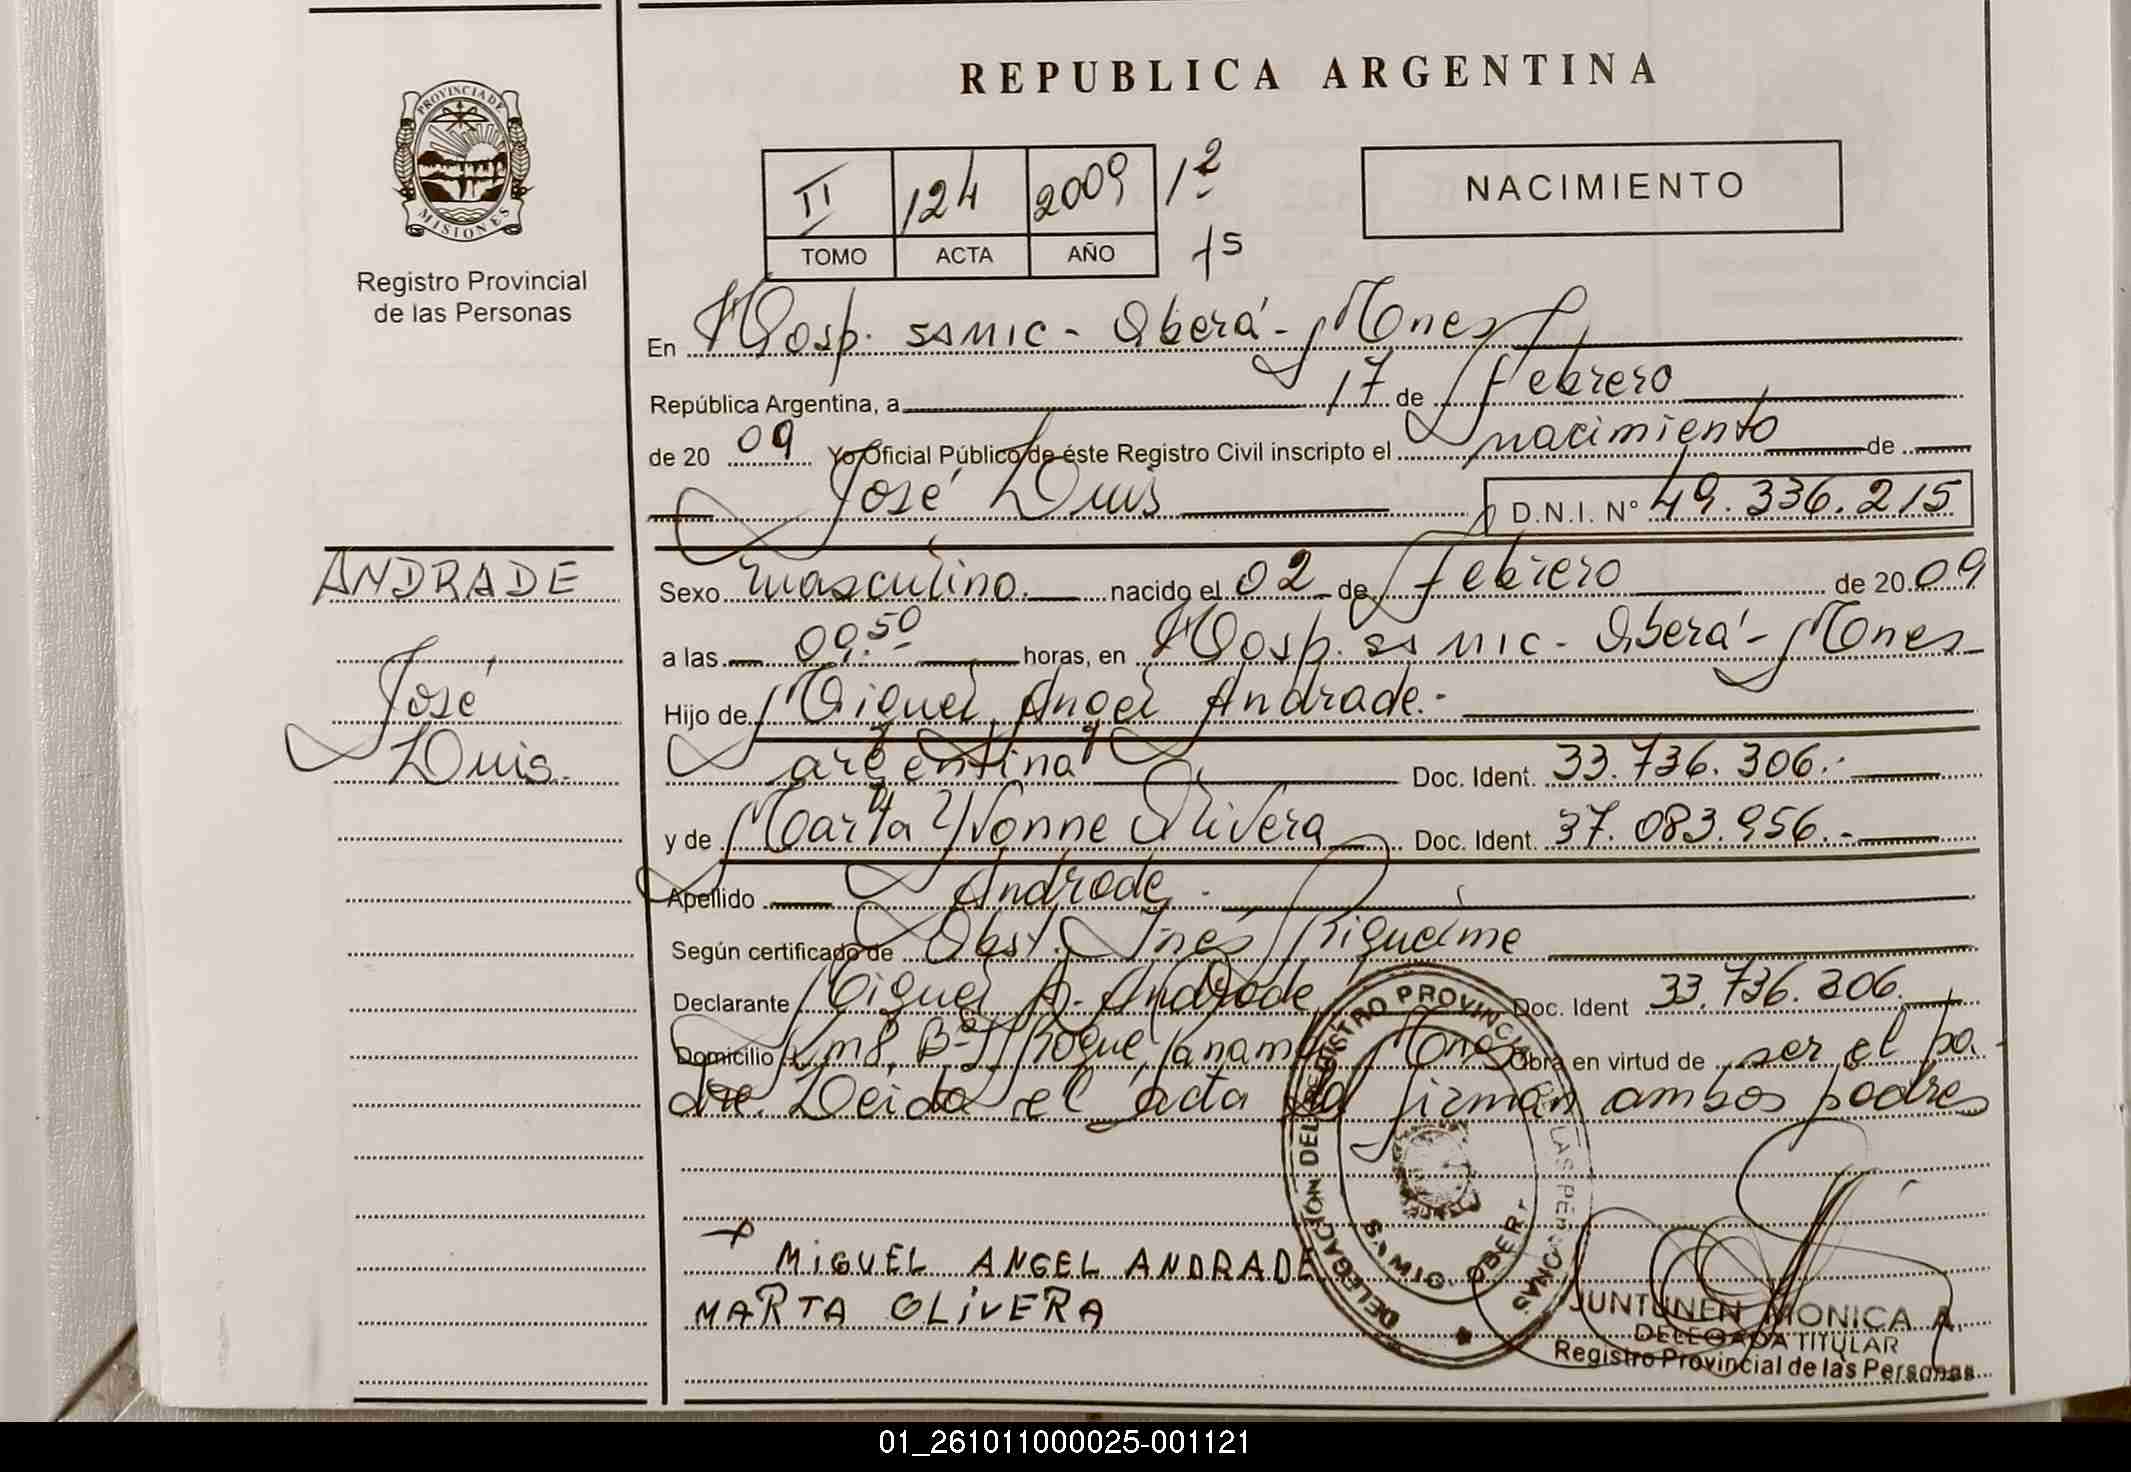 REPUBLICA ARGENTINA
PROVINCIA DE
MISIONES
Registro Provincial
de las Personas
II 124 2009 1º
TOMO ACTA AÑO 1S
NACIMIENTO
En Hosp. SAMIC - Oberá - Mnes
República Argentina, a 17 de Febrero
de 2009 Yo Oficial Público de éste Registro Civil inscripto el nacimiento de
José Luis D.N.I. Nº 49.336.215
ANDRADE
José
Luis.
Sexo masculino. nacido el 02 de Febrero de 2009
a las 09.50 horas, en Hosp. SAMIC - Oberá - Mnes
Hijo de Miguel Angel Andrade.-
argentina Doc. Ident. 33.736.306.-
y de Marta Yvonne Olivera Doc. Ident. 37.083.956.-
Apellido Andrade.
Según certificado de Obst. Inés Riquelme
Declarante Miguel A. Andrade Doc. Ident 33.736.306.
Domicilio Km 8, Bº Roque Mnes Obra en virtud de ser el pa-
dre. Leida el acta la firman ambos padres
MiGUEL ANGEL ANDRADE
MARTA OLiVERA
DELEGACION DEL REGISTRO PROVINCIAL DE LAS PERSONAS
JUNTUNEN MONICA A.
DELEGADA TITULAR
Registro Provincial de las Personas
01_261011000025-001121